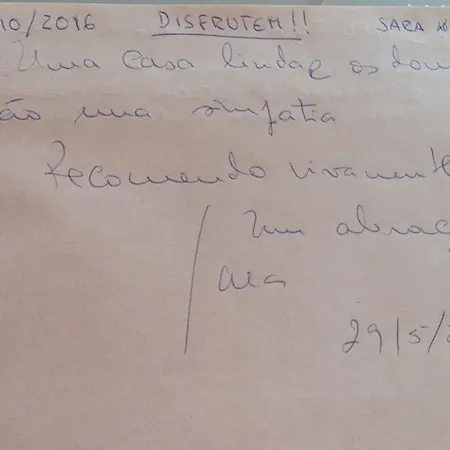 10/2016 DISFRUTEM!! SARA
Uma casa linda e os don
ão uma simpatia
Recomendo vivamente
Um abraç
29/5/2